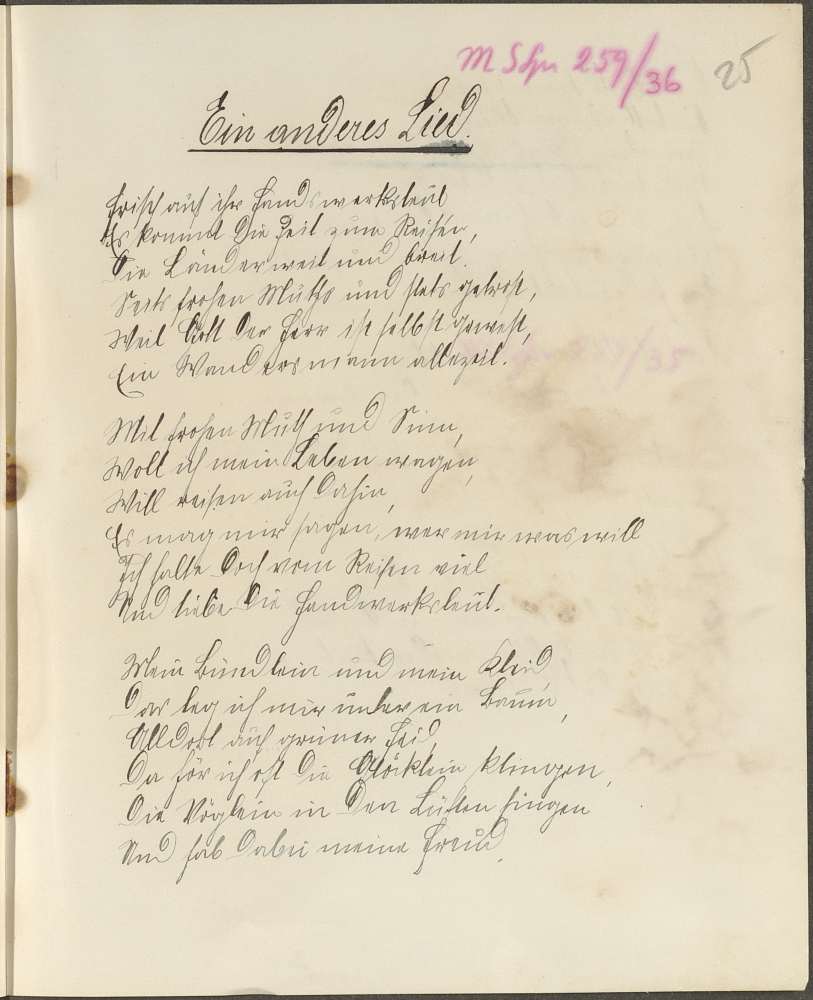 M Schu 259/36 25
Ein anderes Lied.
Frisch auf ihr Handswerksleut
Es kommt die Zeit zum Reisen,
Die Länder weit und breit.
Seits frohen Muths und stets getrost,
Weil Gott der Herr ist selbst gewest,
Ein Wandersmann allezeit.
Mit frohen Muth und Sinn,
Wollt ich mein Leben wagen,
Will reisen auch dahin,
Es mag mir sagen, wer mir was will
Ich halte doch vom Reisen viel
Und liebe die Handwerksleut.
Mein Bündlein und mein Kleid,
Das leg ich mir unter ein Baum,
Alldort auf grüner Heid,
Da hör ich oft die Glöcklein klingen,
Die Vöglein in den Lüften singen
Und hab dabei meine Freud.